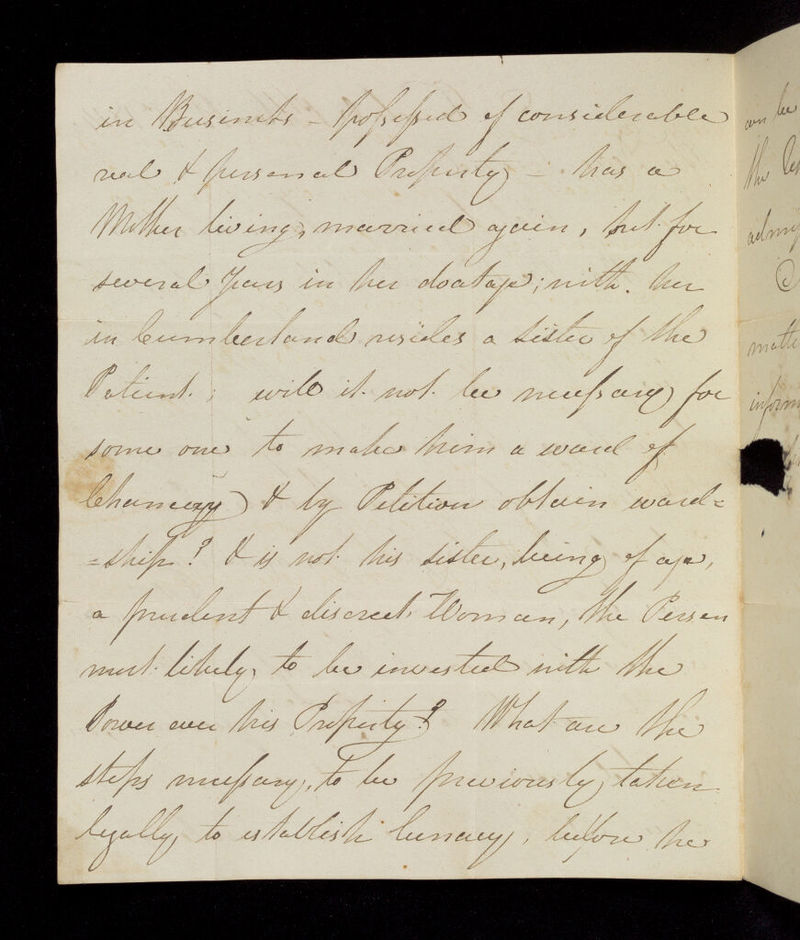 in Business – possessed of considerable
real & personal Property – has a
Mother living, married again, but for
several Years in her doatage; with her
in Cumberland resides a sister of the
Patient; will it not be necessary for
some one to make him a ward of
Chancery & by Petition obtain ward=
=ship? & is not his sister, being of age,
a prudent & discreet Woman, the Person
most likely, to be invested with the
Power over his Property? What are the
steps necessary, to be previously taken
legally, to establish lunacy, before he
the
inform